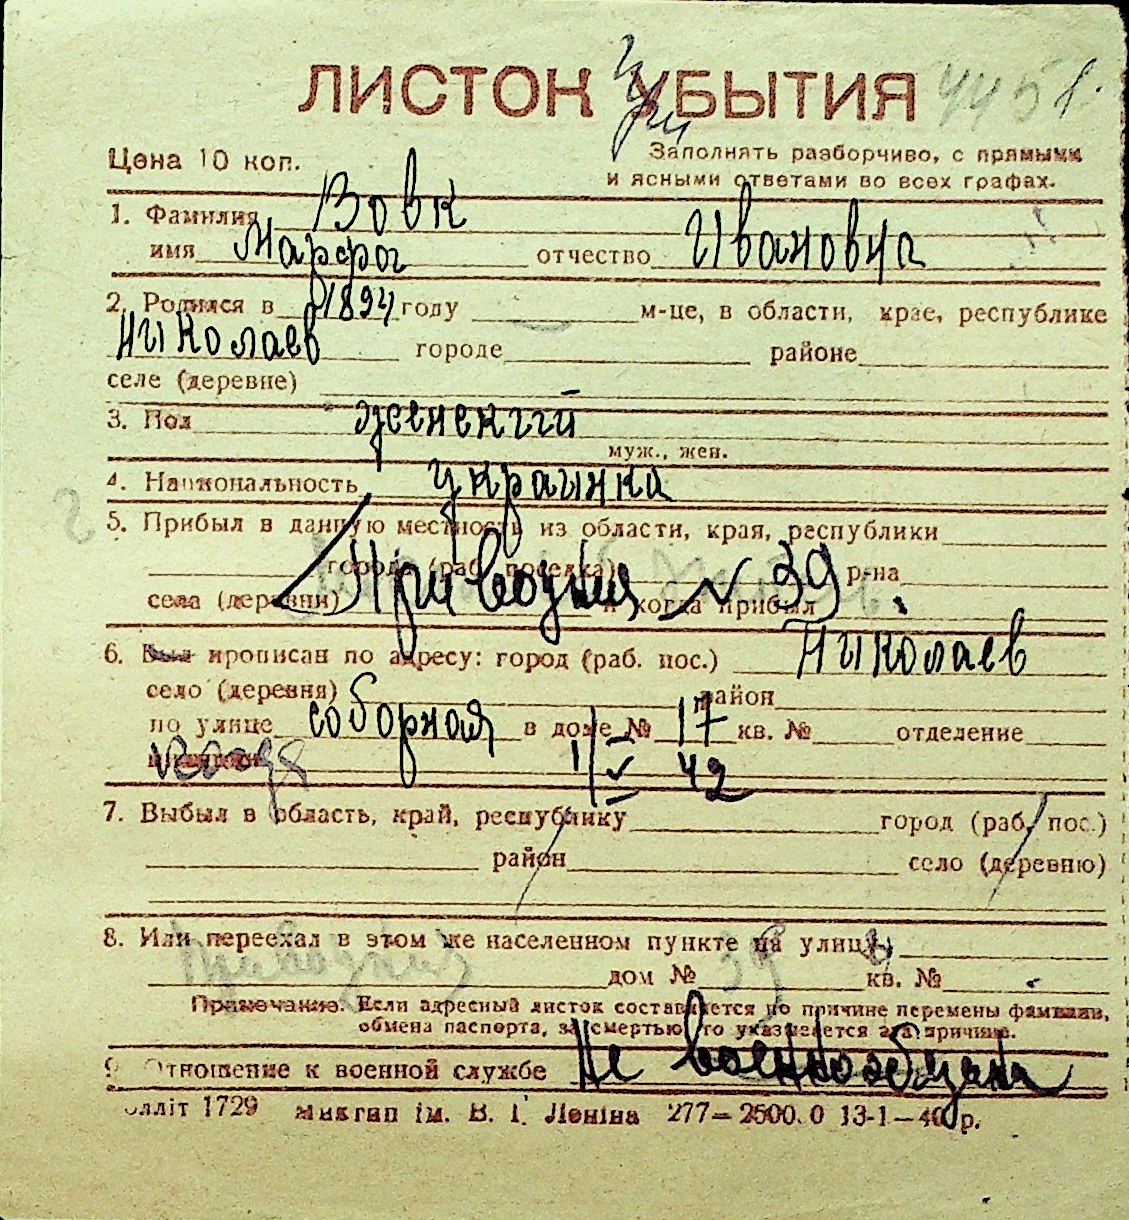 ЛИСТОК УБЫТИЯ 4451.
Цена 10 коп. Заполнять разборчиво, с прямыми
и ясными ответами во всех графах.
1. Фамилия Вовк
имя Марфа отчество Ивановна
2. Родился в 1894 году м-це, в области, крае, республике
Николаев городе районе
селе (деревне)
3. Пол женский
муж., жен.
4. Национальность украинка
5. Прибыл в данную местность из области, края, республики
города (раб. поселка) р-на
Приводная № 39
села (деревни) и когда прибыл
6. Был прописан по адресу: город (раб. пос.) Николаев
село (деревня) район
по улице соборная в доме № 17 кв. № отделение
1/V 42
7. Выбыл в область, край, республику город (раб. пос.)
район село (деревню)
8. Или переехал в этом же населенном пункте на улицу
дом № 39 кв. №
Примечание. Если адресный листок составляется по причине перемены фамилии,
обмена паспорта, за смертью, то указывается эта причина.
9. Отношение к военной службе Не военнообязан
Мiкгiп iм. В. І. Леніна 277—2500.0 13-1—40 р.